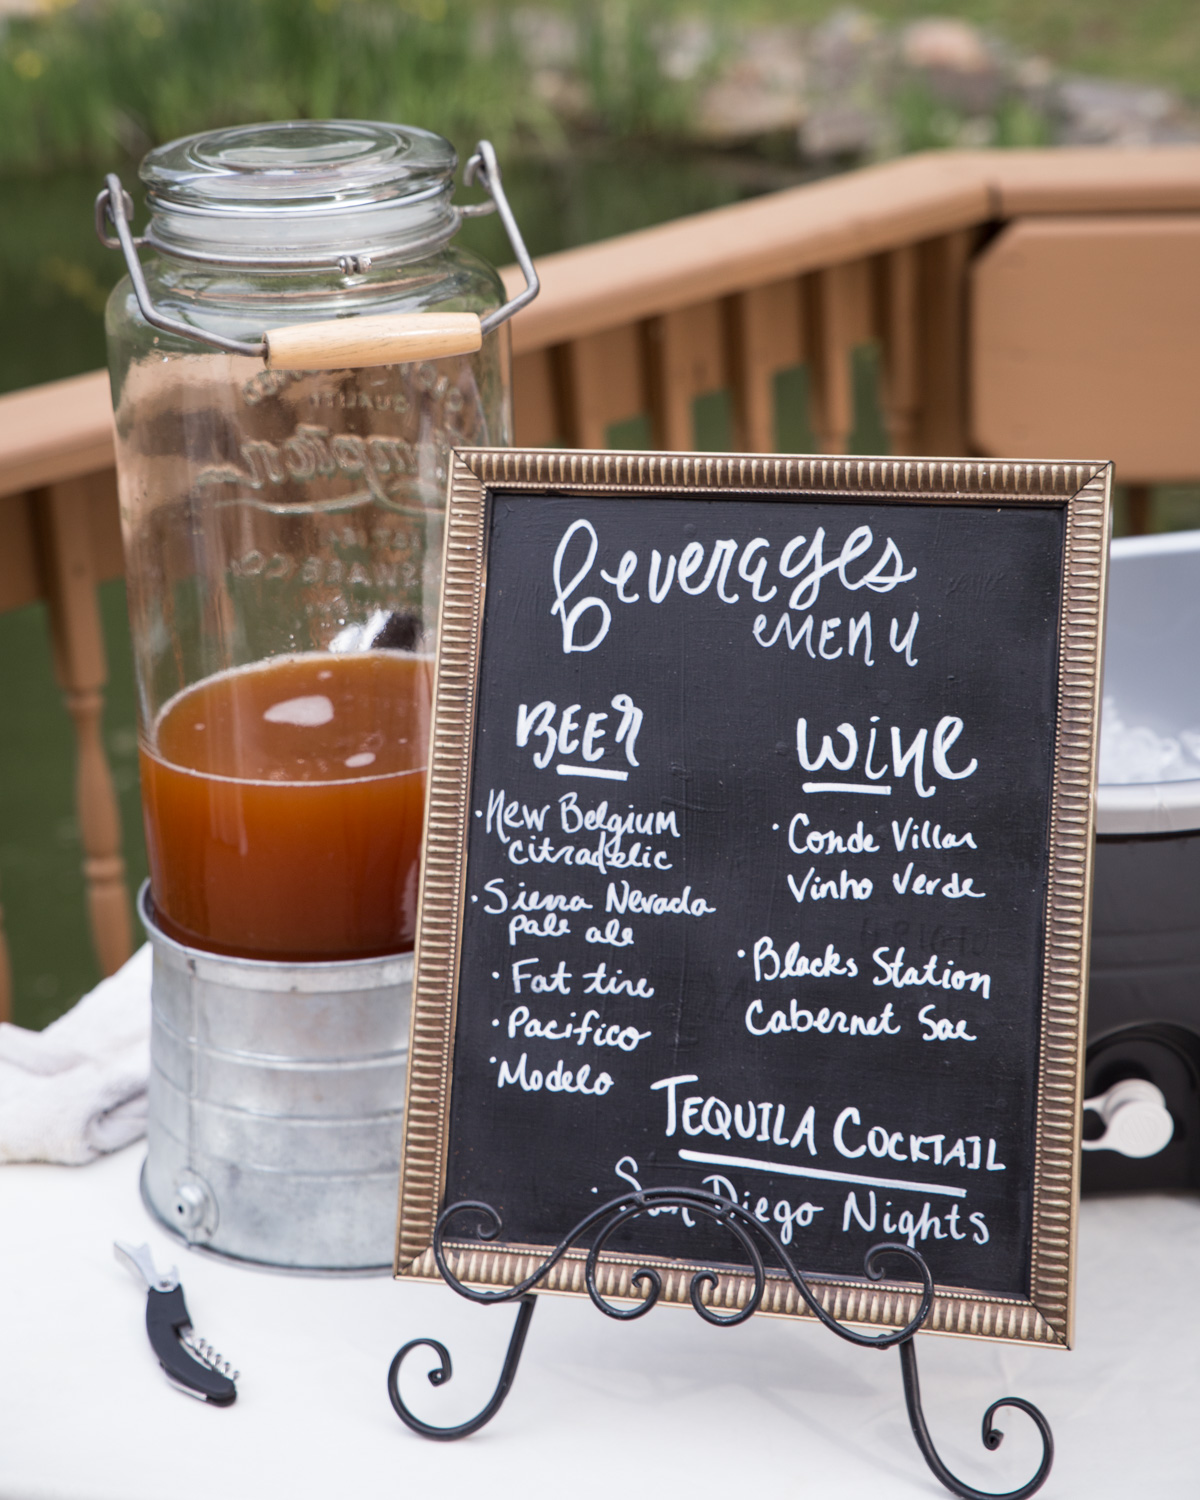 Beverages
MENU
BEER
• New Belgium
citradelic
• Sierra Nevada
pale ale
• Fat tire
• Pacifico
• Modelo
wine
• Conde Villar
Vinho Verde
• Blacks Station
Cabernet Sav
TEQUILA COCKTAIL
• San Diego Nights
QUALITY